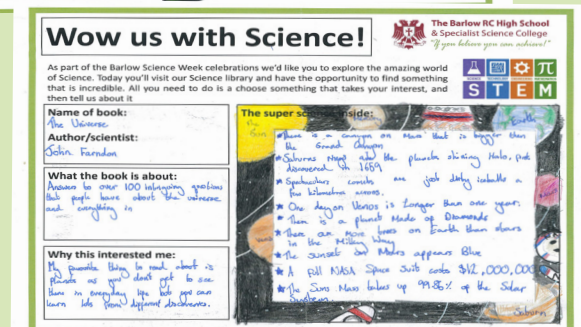 Wow us with Science!
The Barlow RC High School
& Specialist Science College
"If you believe you can achieve!"
As part of the Barlow Science Week celebrations we'd like you to explore the amazing world
of Science. Today you'll visit our Science library and have the opportunity to find something
that is incredible. All you need to do is a choose something that takes your interest, and
then tell us about it
STEM
Name of book:
The Universe
Author/scientist:
John Farndon
What the book is about:
Answers to over 100 intriguing questions
that people have about the universe
and everything in
Why this interested me:
My favourite thing to read about is
Planets as you don't get to see
them in everyday life but you can
learn lots from different discoveries.
The super science inside:
The Sun
Earth
There is a canyon on Mars that is bigger than
the Grand Canyon
Saturns rings are the planets shining Halo, first
discovered in 1659
Spectacular comets are just dirty iceballs a
few kilometres across.
One day on Venus is Longer than one year.
There is a planet Made of Diamonds
There are More trees on Earth than stars
in the Milkey Way
The sunset on Mars appears Blue
A full NASA Space Suit costs $12,000,000
The Suns Mass takes up 99.86% of the Solar
System.
Saturn